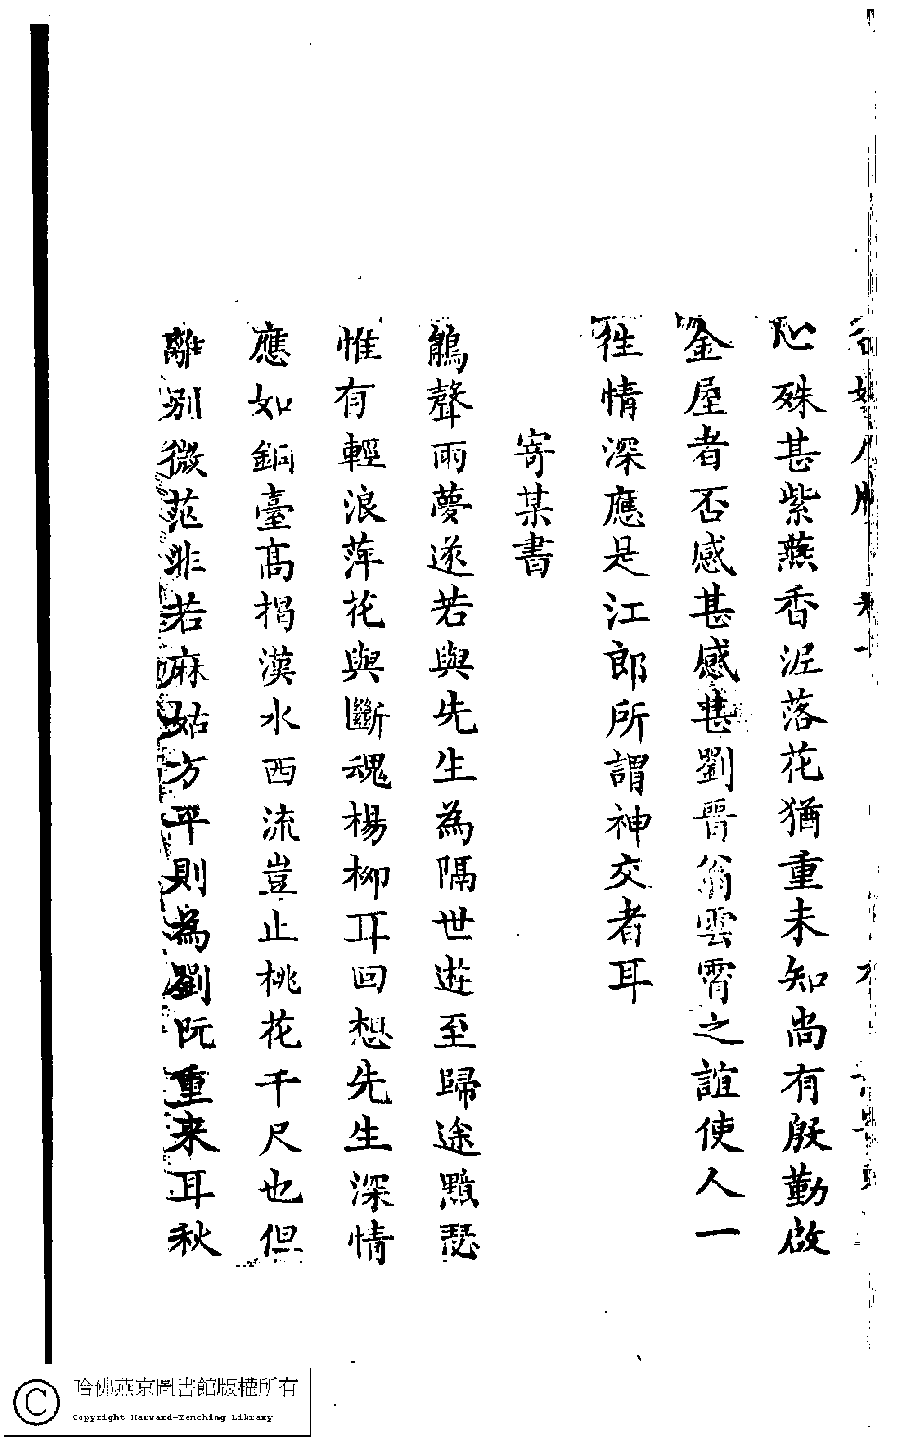 心殊甚紫燕香泥落花猶重未知尚有殷勤啟
金屋者否感甚感甚劉晉翁雲霄之誼使人一
徃情深應是江郎所謂神交者耳
寄某書
鵑聲雨夢遂若與先生為隔世遊至歸途黯瑟
惟有輕浪萍花與斷魂楊柳耳回想先生深情
應如銅臺高揭漢水西流豈止桃花千尺也但
離別微茫非若麻姑方平則為劉阮重来耳秋
哈佛燕京圖書館版權所有
Copyright Harvard-Yenching Library